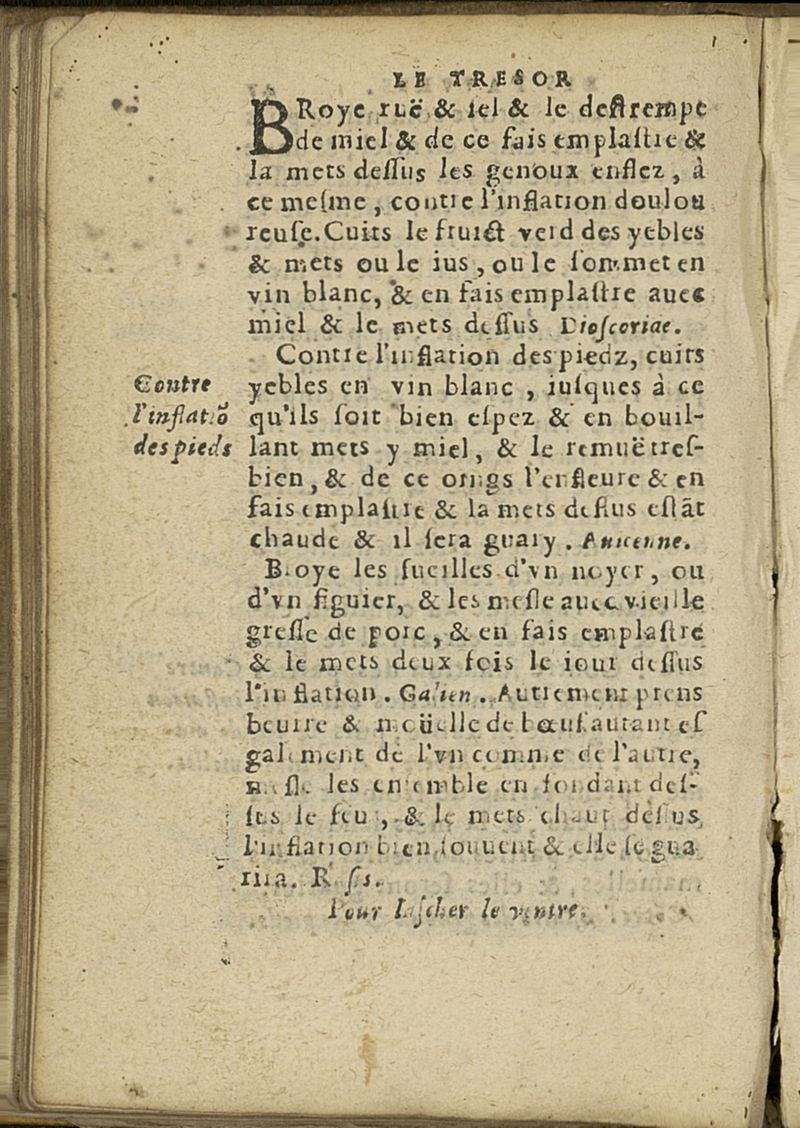 LE TRESOR
BRoye ruë & sel & le destrempe
de miel & de ce fais emplastre &
la mets dessus les genoux enflez, à
ce mesme, contre l'inflation doulou
reuse. Cuits le fruict verd des yebles
& mets ou le ius, ou le sommet en
vin blanc, & en fais emplastre auec
miel & le mets dessus Dioscoriae.
Contre l'inflation des piedz, cuits
Contre
l'inflatiõ
des pieds
yebles en vin blanc, iusques à ce
qu'ils soit bien espez & en bouil-
lant mets y miel, & le remuë tres-
bien, & de ce oings l'enfleure & en
fais emplastre & la mets dessus estãt
chaude & il sera guary. Auicenne.
Broye les fueilles d'vn noyer, ou
d'vn figuier, & les mesle auec vieille
gresse de porc, & en fais emplastre
& le mets deux fois le iour dessus
l'inflation. Galien. Autrement prens
beurre & moüelle de bœuf autant es
galement de l'vn comme de l'autre,
mesle les ensemble en fondant des-
sus le feu, & le mets chaut dessus
l'inflation bien souuent & elle se gua
rira. R
Pour lascher le ventre.